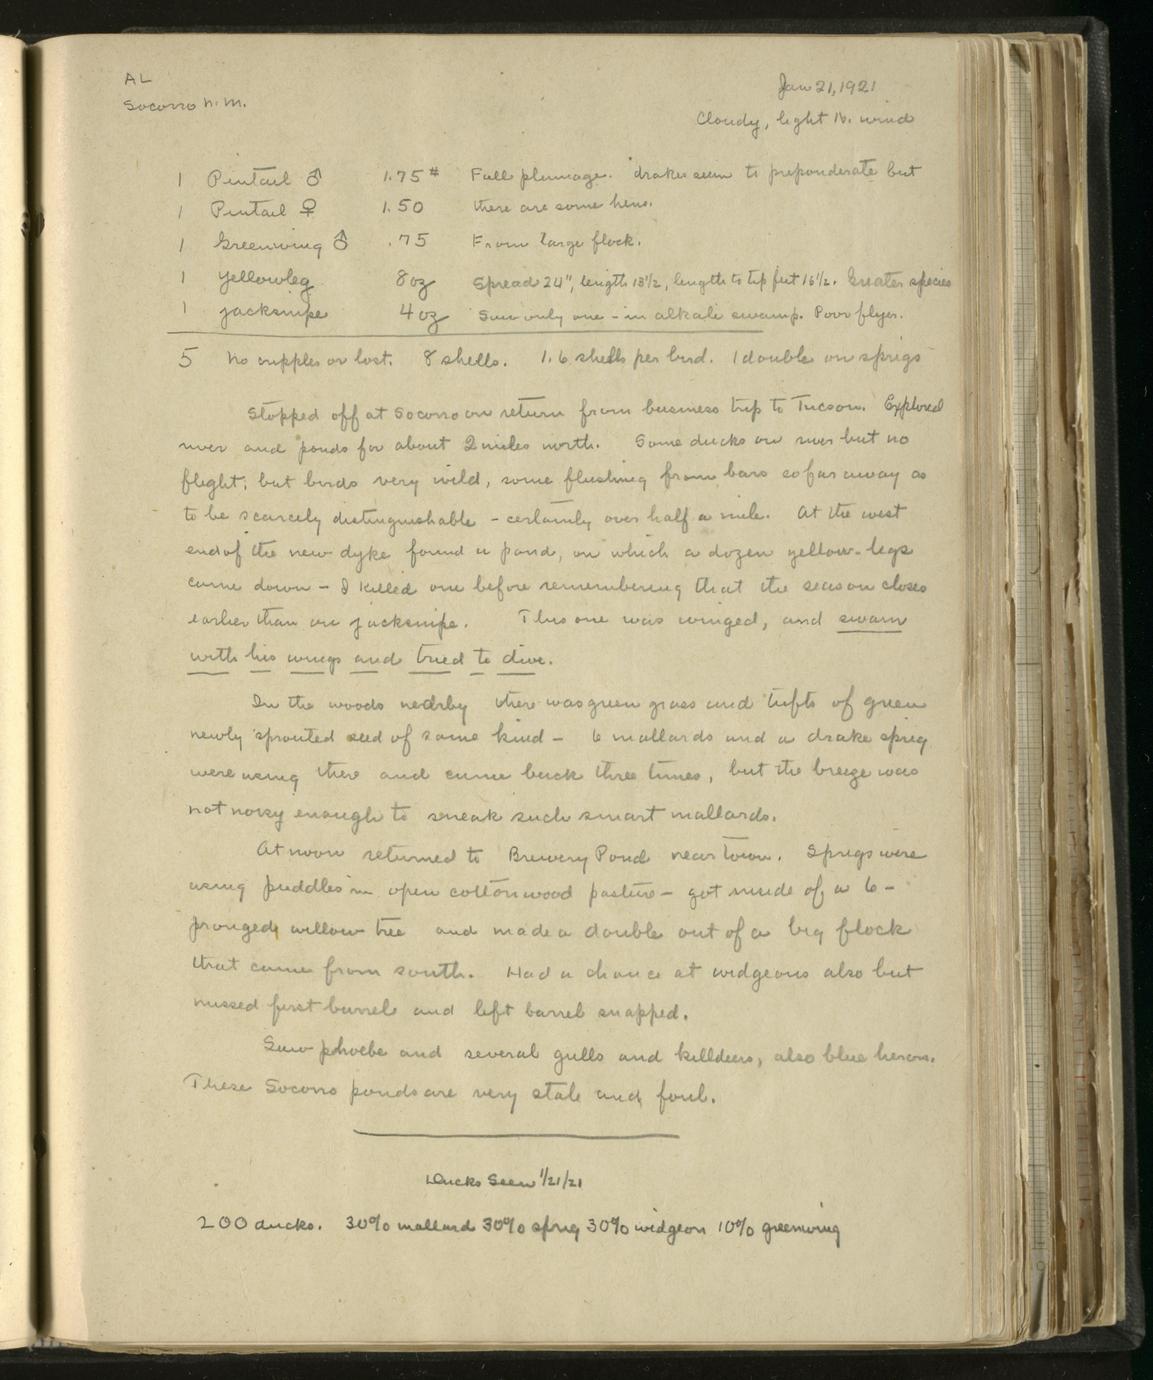 AL
Socorro N.M.
Jan 21, 1921
Cloudy, light N. wind
1 Pintail ♂ 1.75# Full plumage. drakes seem to preponderate but
1 Pintail ♀ 1.50 there are some hens.
1 Greenwing ♂ .75 From large flock.
1 Yellowleg 8oz Spread 24", length 13½, length to tip feet 16½. Greater species
1 jacksnipe 4oz Saw only one - in alkali swamp. Poor flyer.
5 No cripples or lost. 8 shells. 1.6 shells per bird. 1 double on sprigs
Stopped off at Socorro on return from business trip to Tucson. Explored
river and ponds for about 2 miles north. Some ducks on river but no
flight, but birds very wild, some flushing from bars so far away as
to be scarcely distinguishable - certainly over half a mile. At the west
end of the new dyke found a pond, on which a dozen yellow-legs
came down - I killed one before remembering that the season closes
earlier than on jacksnipe. This one was winged, and swam
with his wings and tried to dive.
In the woods nearby there was green grass and tufts of green
newly sprouted seed of some kind - 6 mallards and a drake sprig
were using there and came back three times, but the breeze was
not noisy enough to sneak such smart mallards.
At noon returned to Brewery Pond near town. Sprigs were
using puddles in open cottonwood pasture - got inside of a 6-
pronged willow tree and made a double out of a big flock
that came from south. Had a chance at widgeons also but
missed first barrel and left barrel snapped.
Saw phoebe and several gulls and killdeers, also blue heron.
These Socorro ponds are very stale and foul.
Ducks Seen 1/21/21
200 ducks. 30% mallard 30% sprig 30% widgeon 10% greenwing